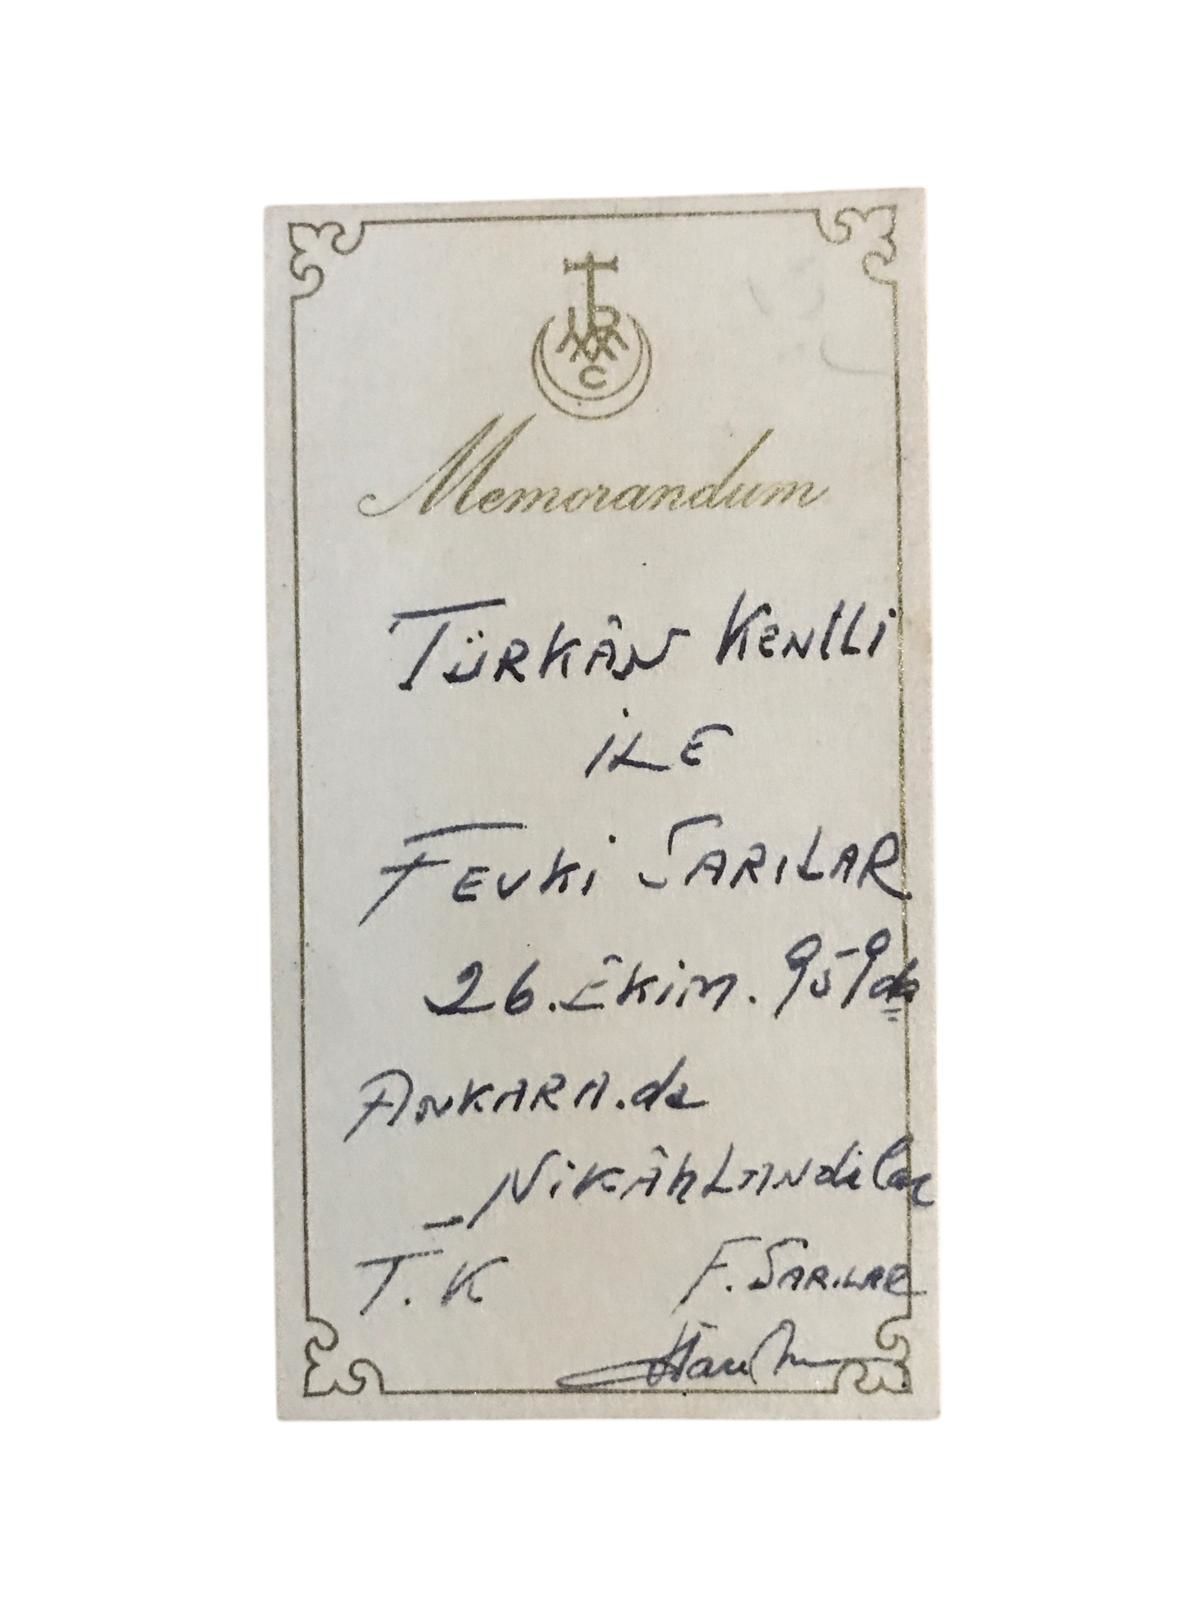 Memorandum
TÜRKÂN KENtLi
iLE
FEVKi SARILAR
26.Êkim.959da
ANKARA.da
_NiKÂhLANdilar
T.K F.SARıLAR